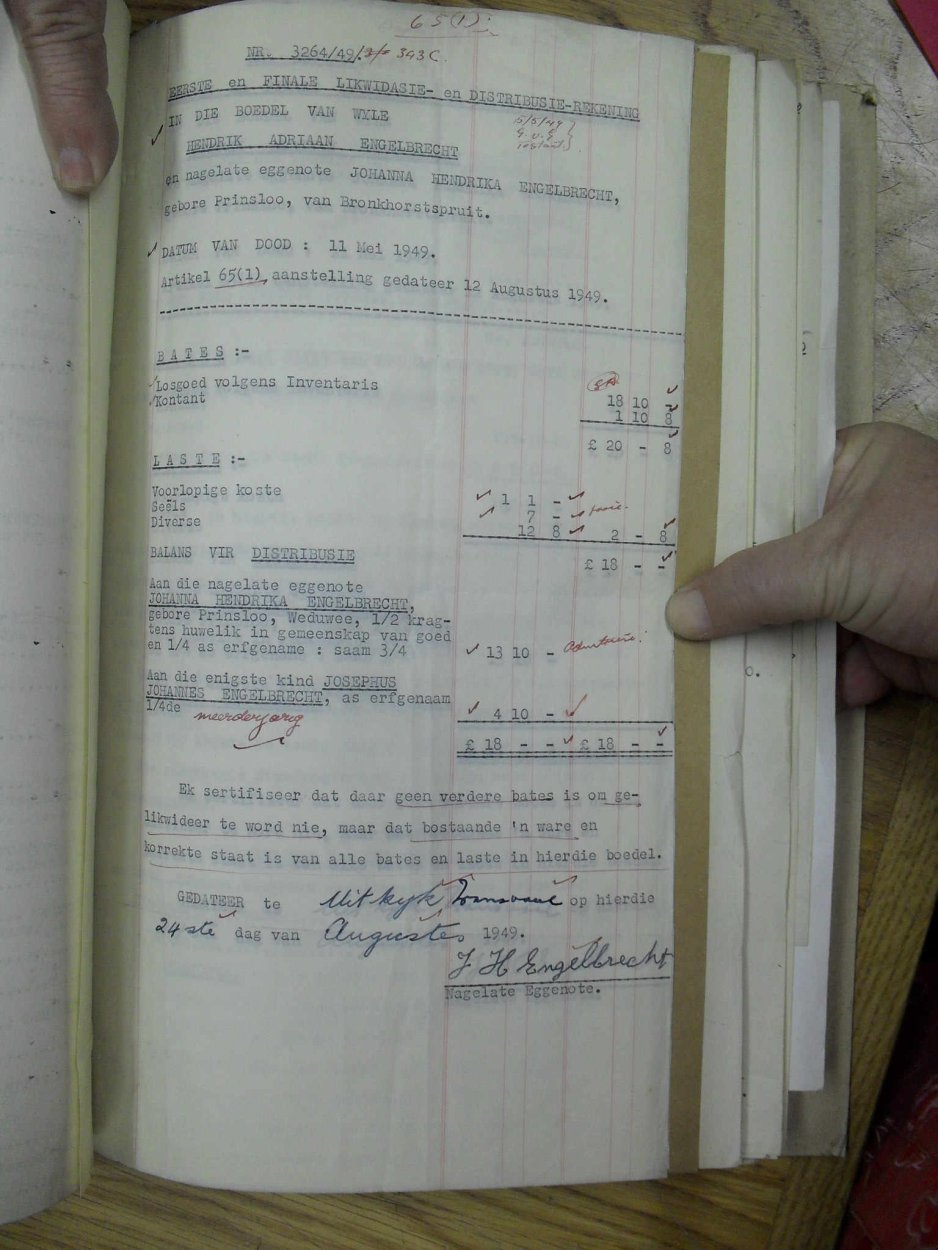 65(1).
NR. 3264/49/ 343C.
EERSTE en FINALE LIKWIDASIE- en DISTRIBUSIE-REKENING
IN DIE BOEDEL VAN WYLE
15/5/49
HENDRIK ADRIAAN ENGELBRECHT
en nagelate eggenote JOHANNA HENDRIKA ENGELBRECHT,
gebore Prinsloo, van Bronkhorstspruit.
DATUM VAN DOOD : 11 Mei 1949.
Artikel 65(1) aanstelling gedateer 12 Augustus 1949.
BATES :-
Losgoed volgens Inventaris 18 10 -
Kontant 1 10 8
£ 20 - 8
LASTE :-
Voorlopige koste 1 1 -
Seëls 7 -
Diverse 12 8 2 - 8
BALANS VIR DISTRIBUSIE £ 18 - -
Aan die nagelate eggenote
JOHANNA HENDRIKA ENGELBRECHT,
gebore Prinsloo, Weduwee, 1/2 krag-
tens huwelik in gemeenskap van goed
en 1/4 as erfgename : saam 3/4 13 10 -
Aan die enigste kind JOSEPHUS
JOHANNES ENGELBRECHT, as erfgenaam
1/4de 4 10 -
meerderjarig
£ 18 - - £ 18 - -
Ek sertifiseer dat daar geen verdere bates is om ge-
likwideer te word nie, maar dat bostaande 'n ware en
korrekte staat is van alle bates en laste in hierdie boedel.
GEDATEER te Uitkyk Transvaal op hierdie
24ste dag van Augustus 1949.
J H Engelbrecht
Nagelate Eggenote.